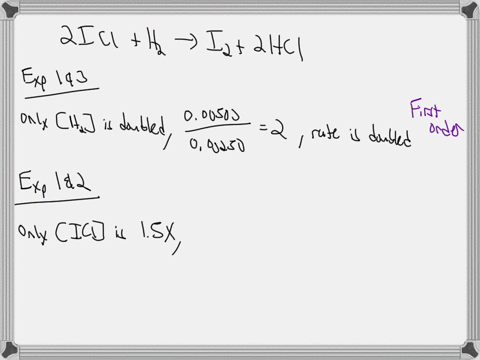 2ICl + H₂ → I₂ + 2HCl
Exp 1&3
only [H₂] is doubled, 0.00503 / 0.00250 = 2, rate is doubled First order
Exp 1&2
only [ICl] is 1.5X,